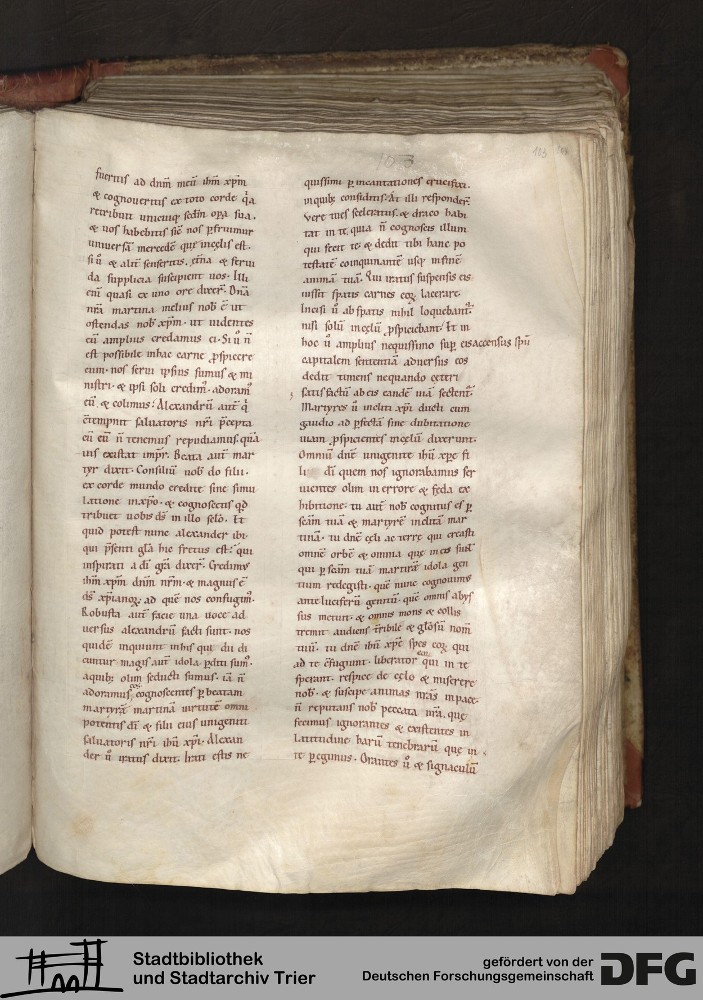 103
103
fueritis ad dnm̄ meū ihm̄ xp̄m
& cognoueritis ex toto corde q̄a
retribuit unicuiq; scdm̄ op̄a sua.
& uos habebitis sic̄ nos p̄fruimur
uniuersā mercedē que incęlis est.
si ū & alit̄ senseritis. et̄na & seruı
da supplicia suscipient uos. Illi
cūi quasi ex uno ore dixer̄. Dn̄a
nr̄a martina melius nob̄ ē ut
ostendas nob̄ xp̄m. ut uidentes
eū amplius credamus ei. Si ū n̄
est possibile inhac carne p̄spicere
eum. nos serui ipsius sumus & mi
nistri. & ipsi soli credim̄. adoram̄
eū. & colimus. Alexandrū aut̄ q̄
c̄tempnit saluatoris nr̄i p̄cepta
eū n̄ tenemus repudiamus. quā
uis existat imp̄r. Beata aut̄ mar
tyr dixit. Consiliū uob̄ do filii.
ex corde mundo credite sine simu
latione inxp̄o. & cognoscetis qd̄
tribuet uobis ds̄ in illo sclō. Et
quid potest nunc alexander ibi
qui p̄senti gl̄a hic fretus est. qui
inspirati a dī gr̄a dixer̄. Credimus
ihm̄ xp̄m dnm̄ nr̄m. & magnus ē
ds̄ xp̄ianoꝝ. ad quē nos confugim̄.
Robusta aut̄ facie una uoce ad
uersus alexandrū facti sunt. nos
quidē inquiunt inhis qui dii di
cuntur magis aut̄ idola p̄diti sum̄.
aquib; olim seducti sumus. iā n̄
adoramus eos cognoscentes p̄ beatam
martyrā martinā uirtutē omni
potentis dī & filii eius unigeniti
saluatoris nr̄i ihū xp̄i. Alexan
der ū iratus dixit. Irati estis ne
quissimi p̄ incantationes crucifixi.
inquib; confiditis. At illi responder̄.
vere tues sceleratus. & draco habi
tat in te. quia n̄ cognoscis illum
qui fecit te. & dedit tibi hanc po
testatē coinquinantē usq; infinē
animā tuā. Qui iratus suspensis eis
iussit spatis carnes eoꝝ lacerare.
Incisi ū ab spatis nihil loquebant̄.
nisi solū incęlū p̄spiciebant. Et in
hoc ū amplius nequissimo sup̄ eis accensus sp̄u
capitalem sententiā aduersus eos
dedit timens nequando ceteri
satisfactū ab eis eandē uiā sectent̄.
Martyres ū incliti xp̄i ducti cum
gaudio ad p̄fectā sine dubitatione
uiam. p̄spicientes incęlū dixerunt.
Omniū dn̄e unigenite ihū xp̄e fi
li dī quem nos ignorabamus ser
uientes olim in errore & feda ex
hibitione. tu aut̄ nob̄ cognitus es p̄
scām tuā & martyrē inclitā mar
tinā. tu dn̄e cęli ac terre qui creasti
omnē orbē & omnia que in eis sub̄
qui p̄ scām tuā martirā idola gen
tium redegisti. quē nunc cognouimus
ante luciferū genitū. quē omnis abys
sus metuit. & omnis mons & collis
tremit audiens tr̄ibile & gl̄osū nom̄
tuū. tu dn̄e ihū xp̄e spes eoꝝ qui
ad te c̄fugiunt. liberator eoꝝ qui in te
sperant. respice de cęlo & miserere
nob̄. & suscipe animas nr̄as inpace.
n̄ reputans nob̄ peccata nr̄a. que
fecimus ignorantes & existentes in
latitudine harū tenebrarū que in
te p̄egimus. Orantes ū & signaculū
Stadtbibliothek
und Stadtarchiv Trier
gefördert von der
Deutschen Forschungsgemeinschaft
DFG